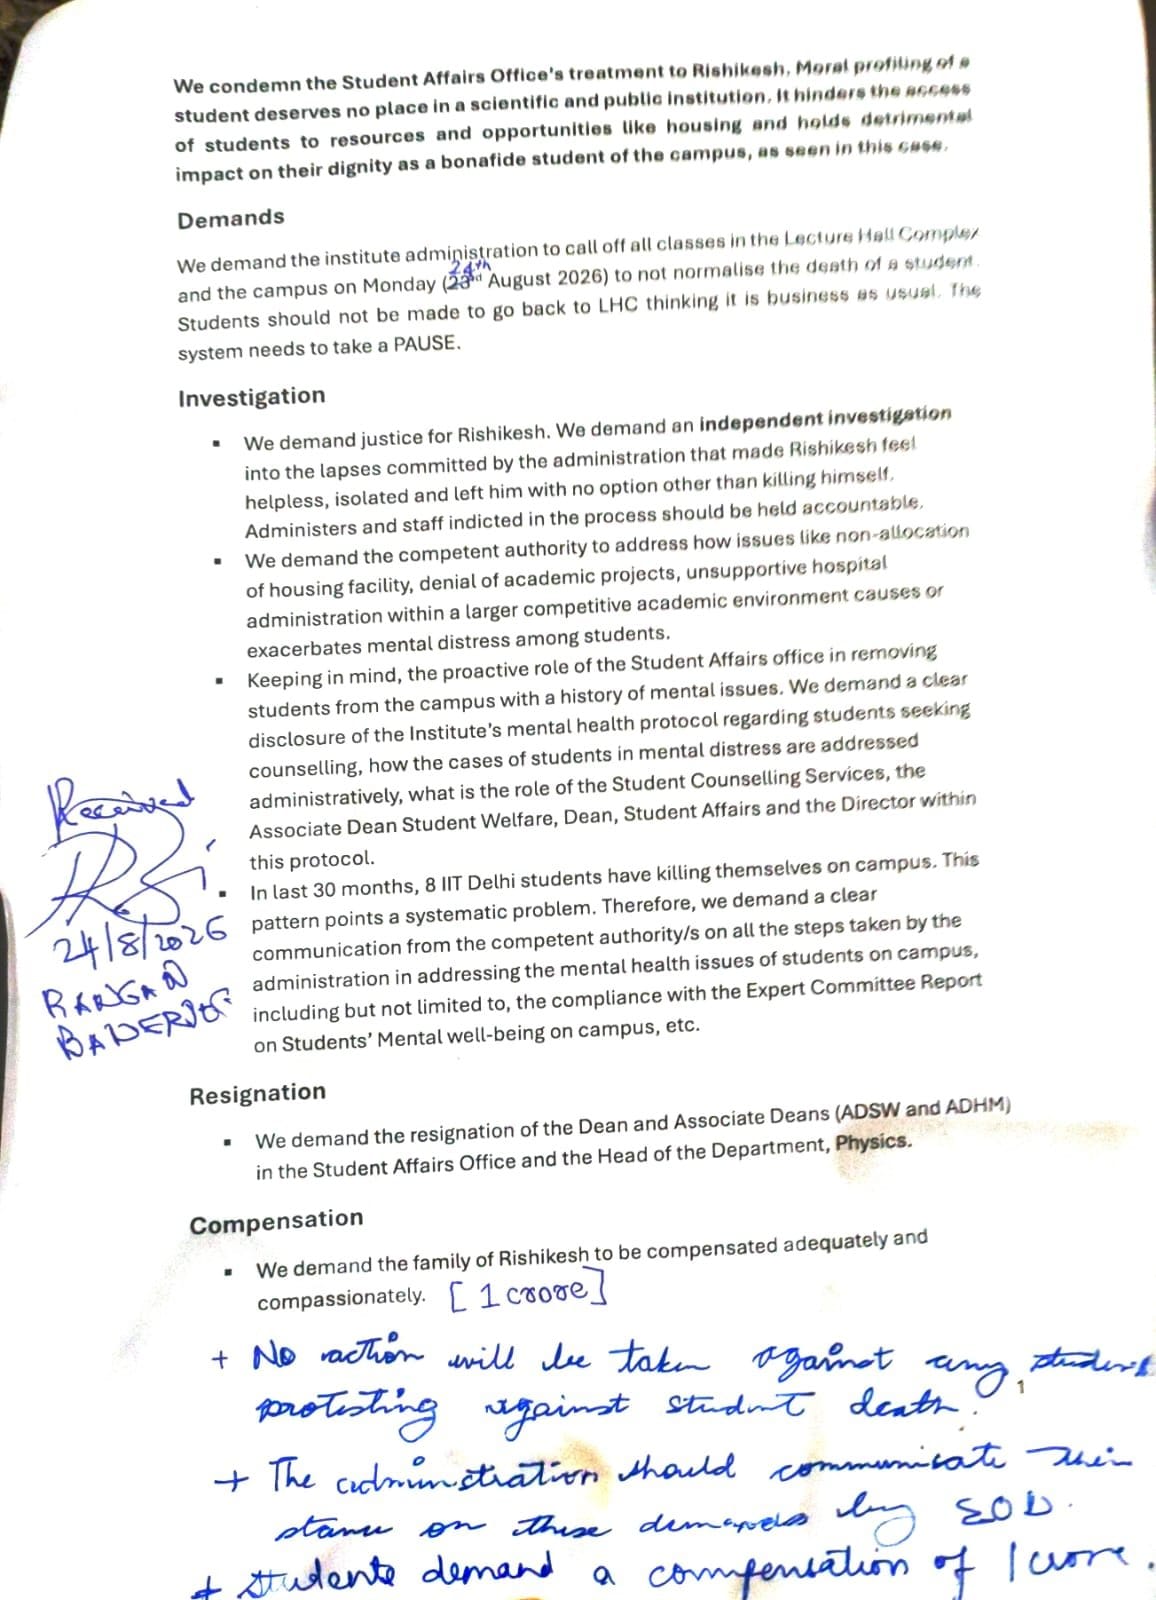 We condemn the Student Affairs Office's treatment to Rishikesh. Moral profiling of a
student deserves no place in a scientific and public institution. It hinders the access
of students to resources and opportunities like housing and holds detrimental
impact on their dignity as a bonafide student of the campus, as seen in this case.
Demands
We demand the institute administration to call off all classes in the Lecture Hall Complex
24th
and the campus on Monday (23rd August 2026) to not normalise the death of a student.
Students should not be made to go back to LHC thinking it is business as usual. The
system needs to take a PAUSE.
Investigation
▪ We demand justice for Rishikesh. We demand an independent investigation
into the lapses committed by the administration that made Rishikesh feel
helpless, isolated and left him with no option other than killing himself.
Administers and staff indicted in the process should be held accountable.
▪ We demand the competent authority to address how issues like non-allocation
of housing facility, denial of academic projects, unsupportive hospital
administration within a larger competitive academic environment causes or
exacerbates mental distress among students.
▪ Keeping in mind, the proactive role of the Student Affairs office in removing
students from the campus with a history of mental issues. We demand a clear
disclosure of the Institute's mental health protocol regarding students seeking
counselling, how the cases of students in mental distress are addressed
administratively, what is the role of the Student Counselling Services, the
Associate Dean Student Welfare, Dean, Student Affairs and the Director within
this protocol.
▪ In last 30 months, 8 IIT Delhi students have killing themselves on campus. This
pattern points a systematic problem. Therefore, we demand a clear
communication from the competent authority/s on all the steps taken by the
administration in addressing the mental health issues of students on campus,
including but not limited to, the compliance with the Expert Committee Report
on Students' Mental well-being on campus, etc.
Received
24/8/2026
RANGAN
BANERJEE
Resignation
▪ We demand the resignation of the Dean and Associate Deans (ADSW and ADHM)
in the Student Affairs Office and the Head of the Department, Physics.
Compensation
▪ We demand the family of Rishikesh to be compensated adequately and
compassionately. [1 crore]
+ No action will be taken against any student
protesting against student death.
1
+ The administration should communicate their
stance on these demands by EOD.
+ Students demand a compensation of 1 crore.